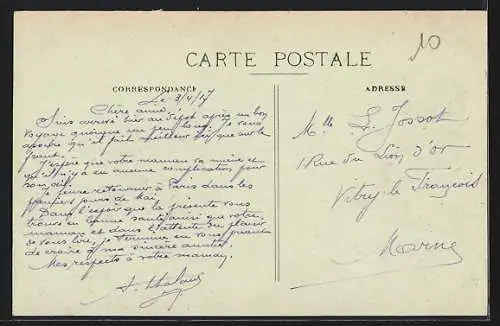 10
CARTE POSTALE
CORRESPONDANCE
ADRESSE
Le 3/4/17
Chère amie
Suis arrivé hier au dépôt après un bon
voyage quoique un peu long. Je vous
qu'il fait meilleur ici que sur le
front.
J'espère que votre maman va mieux et
qu'il n'y a eu aucune complication pour
son
Je pense retourner à Paris dans les
premiers jours de Mai.
Dans l'espoir que la présente vous
trouve en bonne santé ainsi que votre
maman et dans l'attente du plaisir
de vous lire, je termine en vous priant
de croire à ma sincère amitié.
Mes respects à votre maman.
Mlle L. Jossot
1 Rue du Lion d'or
Vitry le François
Marne